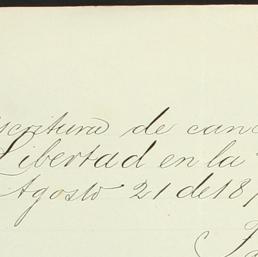 scritura de can
Libertad en la
Agosto 21 de 18